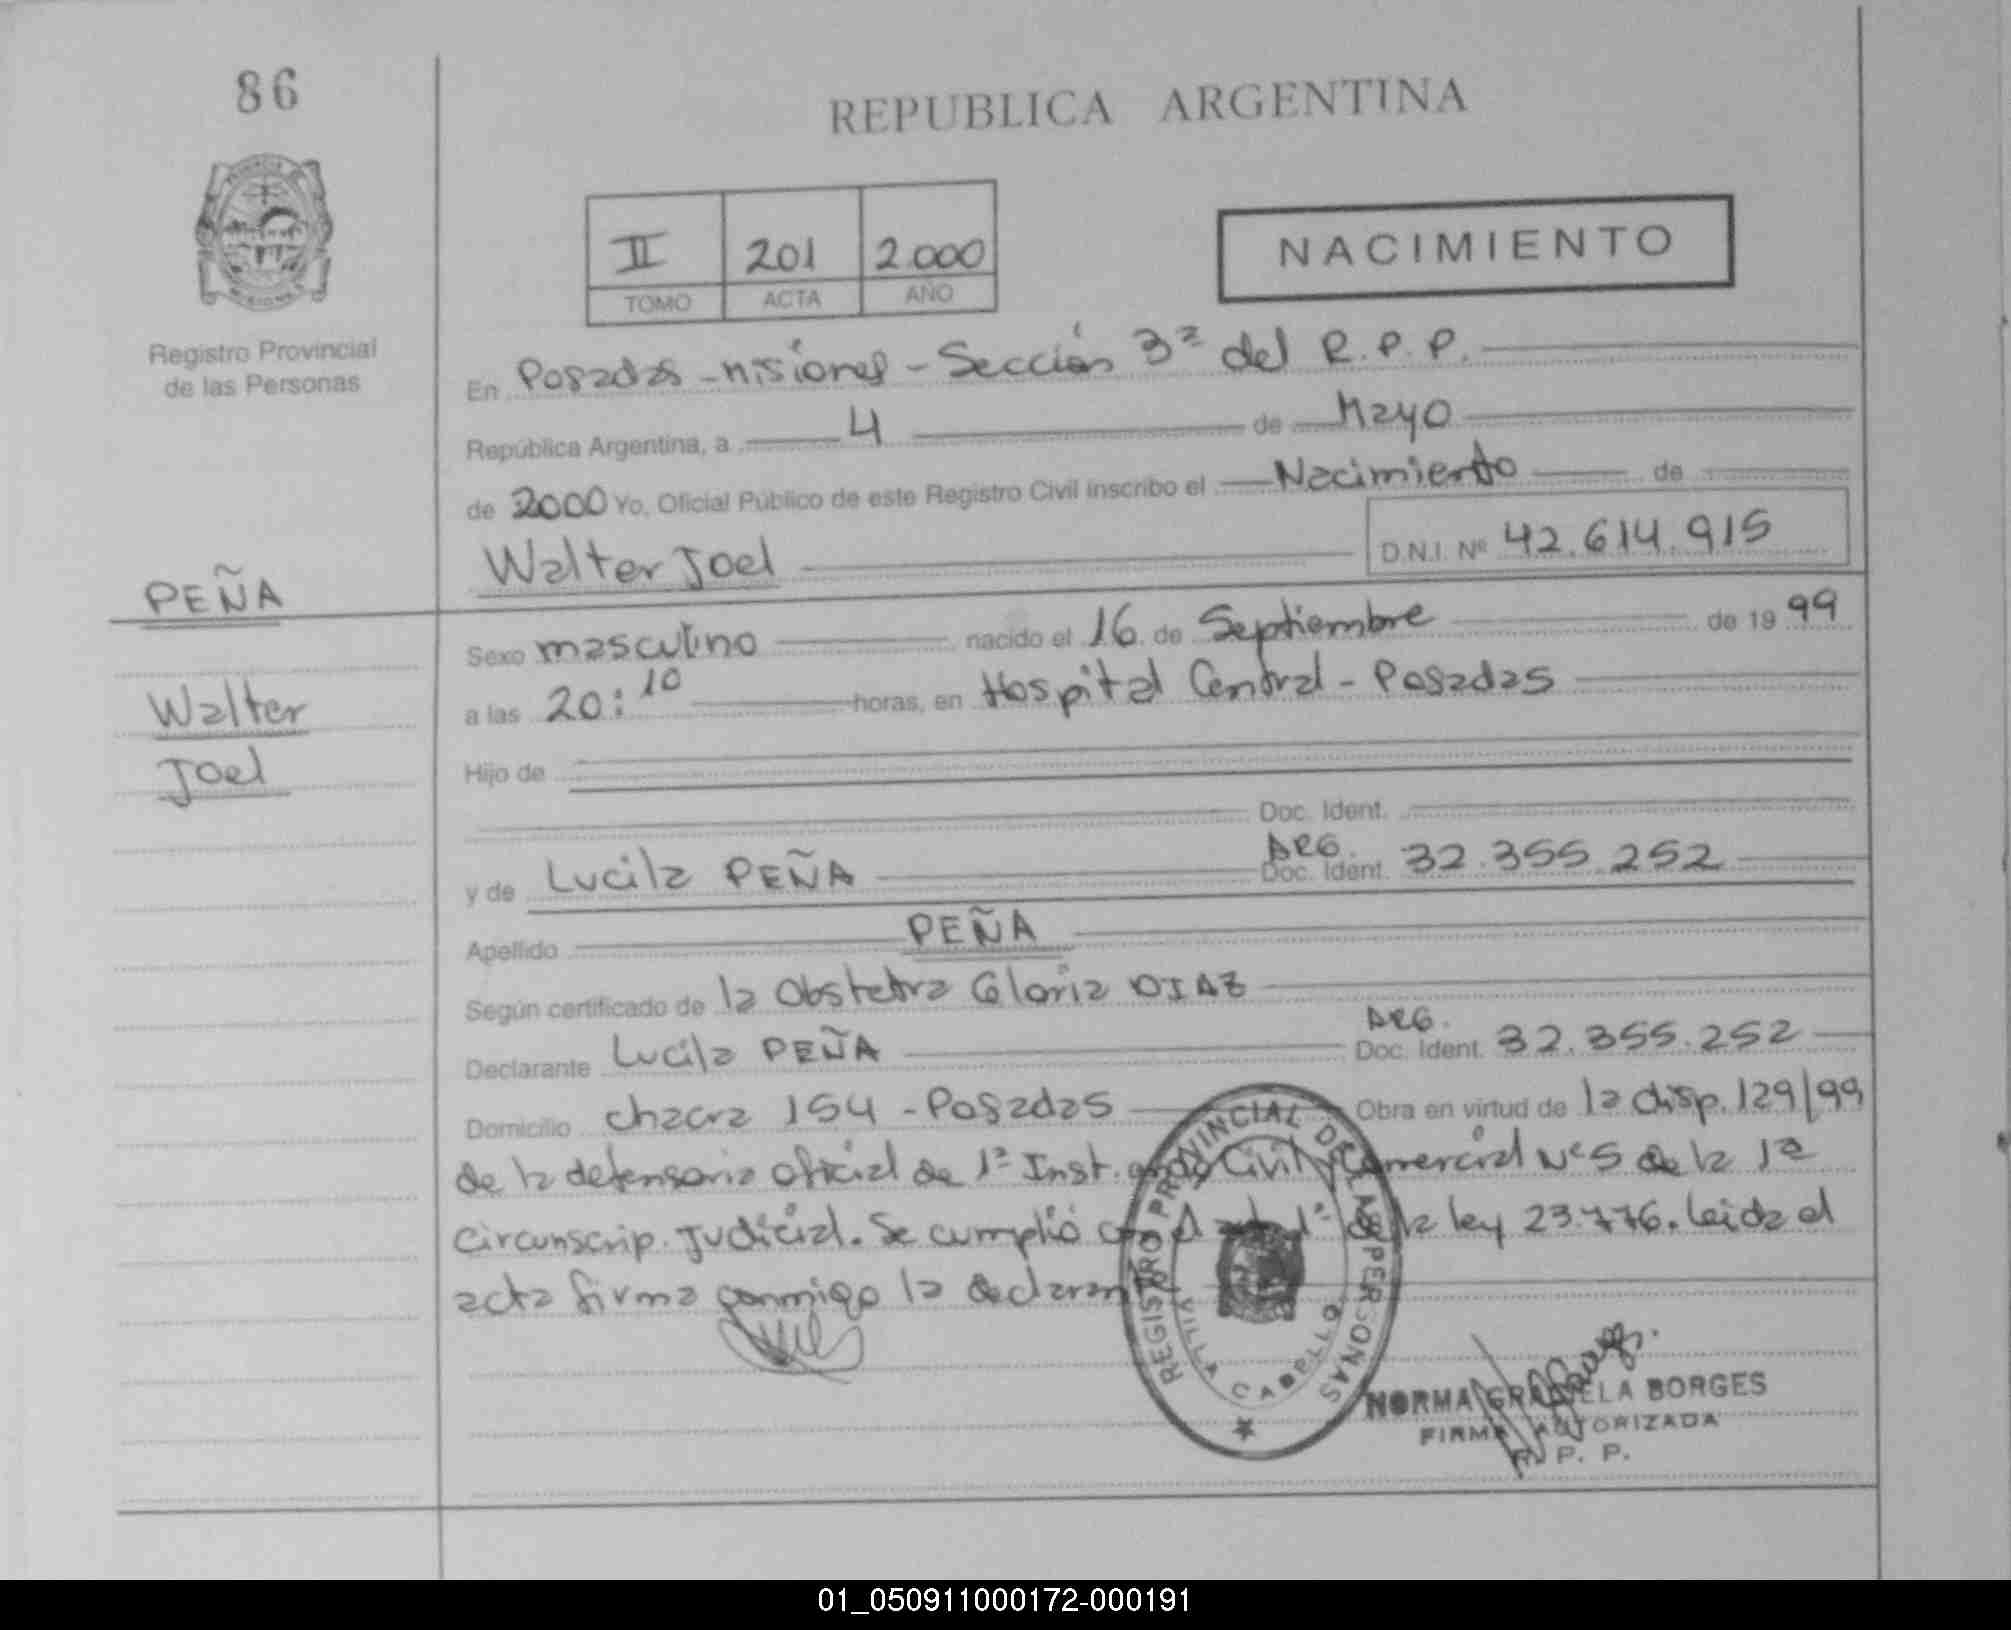 86
REPUBLICA ARGENTINA
II 201 2.000
TOMO ACTA AÑO
NACIMIENTO
Registro Provincial
de las Personas
En Posadas - Misiones - Sección 3ª del R.P.P.
República Argentina, a 4 de Mayo
de 2000 Yo, Oficial Público de este Registro Civil inscribo el Nacimiento de
Walter Joel D.N.I. Nº 42.614.915
PEÑA
Walter
Joel
Sexo masculino nacido el 16 de Septiembre de 19 99
a las 20:10 horas, en Hospital Central - Posadas
Hijo de
Doc. Ident.
y de Lucila PEÑA ARG. Doc. Ident. 32.355.252
Apellido PEÑA
Según certificado de la Obstetra Gloria DIAZ
Declarante Lucila PEÑA ARG. Doc. Ident. 32.355.252
Domicilio chacra 154 - Posadas Obra en virtud de la disp. 129/99
de la defensoria oficial de 1ª Inst. Civil y Comercial Nº 5 de la 1ª
circunscrip. Judicial. Se cumplió con el 1º de la ley 23.776. Leida el
acta firma conmigo la declarante
REGISTRO PROVINCIAL DE LAS PERSONAS
VILLA CABELLO
NORMA GRACIELA BORGES
FIRMA AUTORIZADA
R. P. P.
01_050911000172-000191